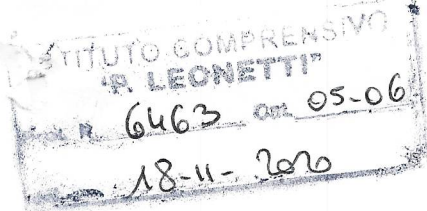 ISTITUTO COMPRENSIVO
"P. LEONETTI"
Prot. N. 6463 Cat. 05-06
18-11-2020